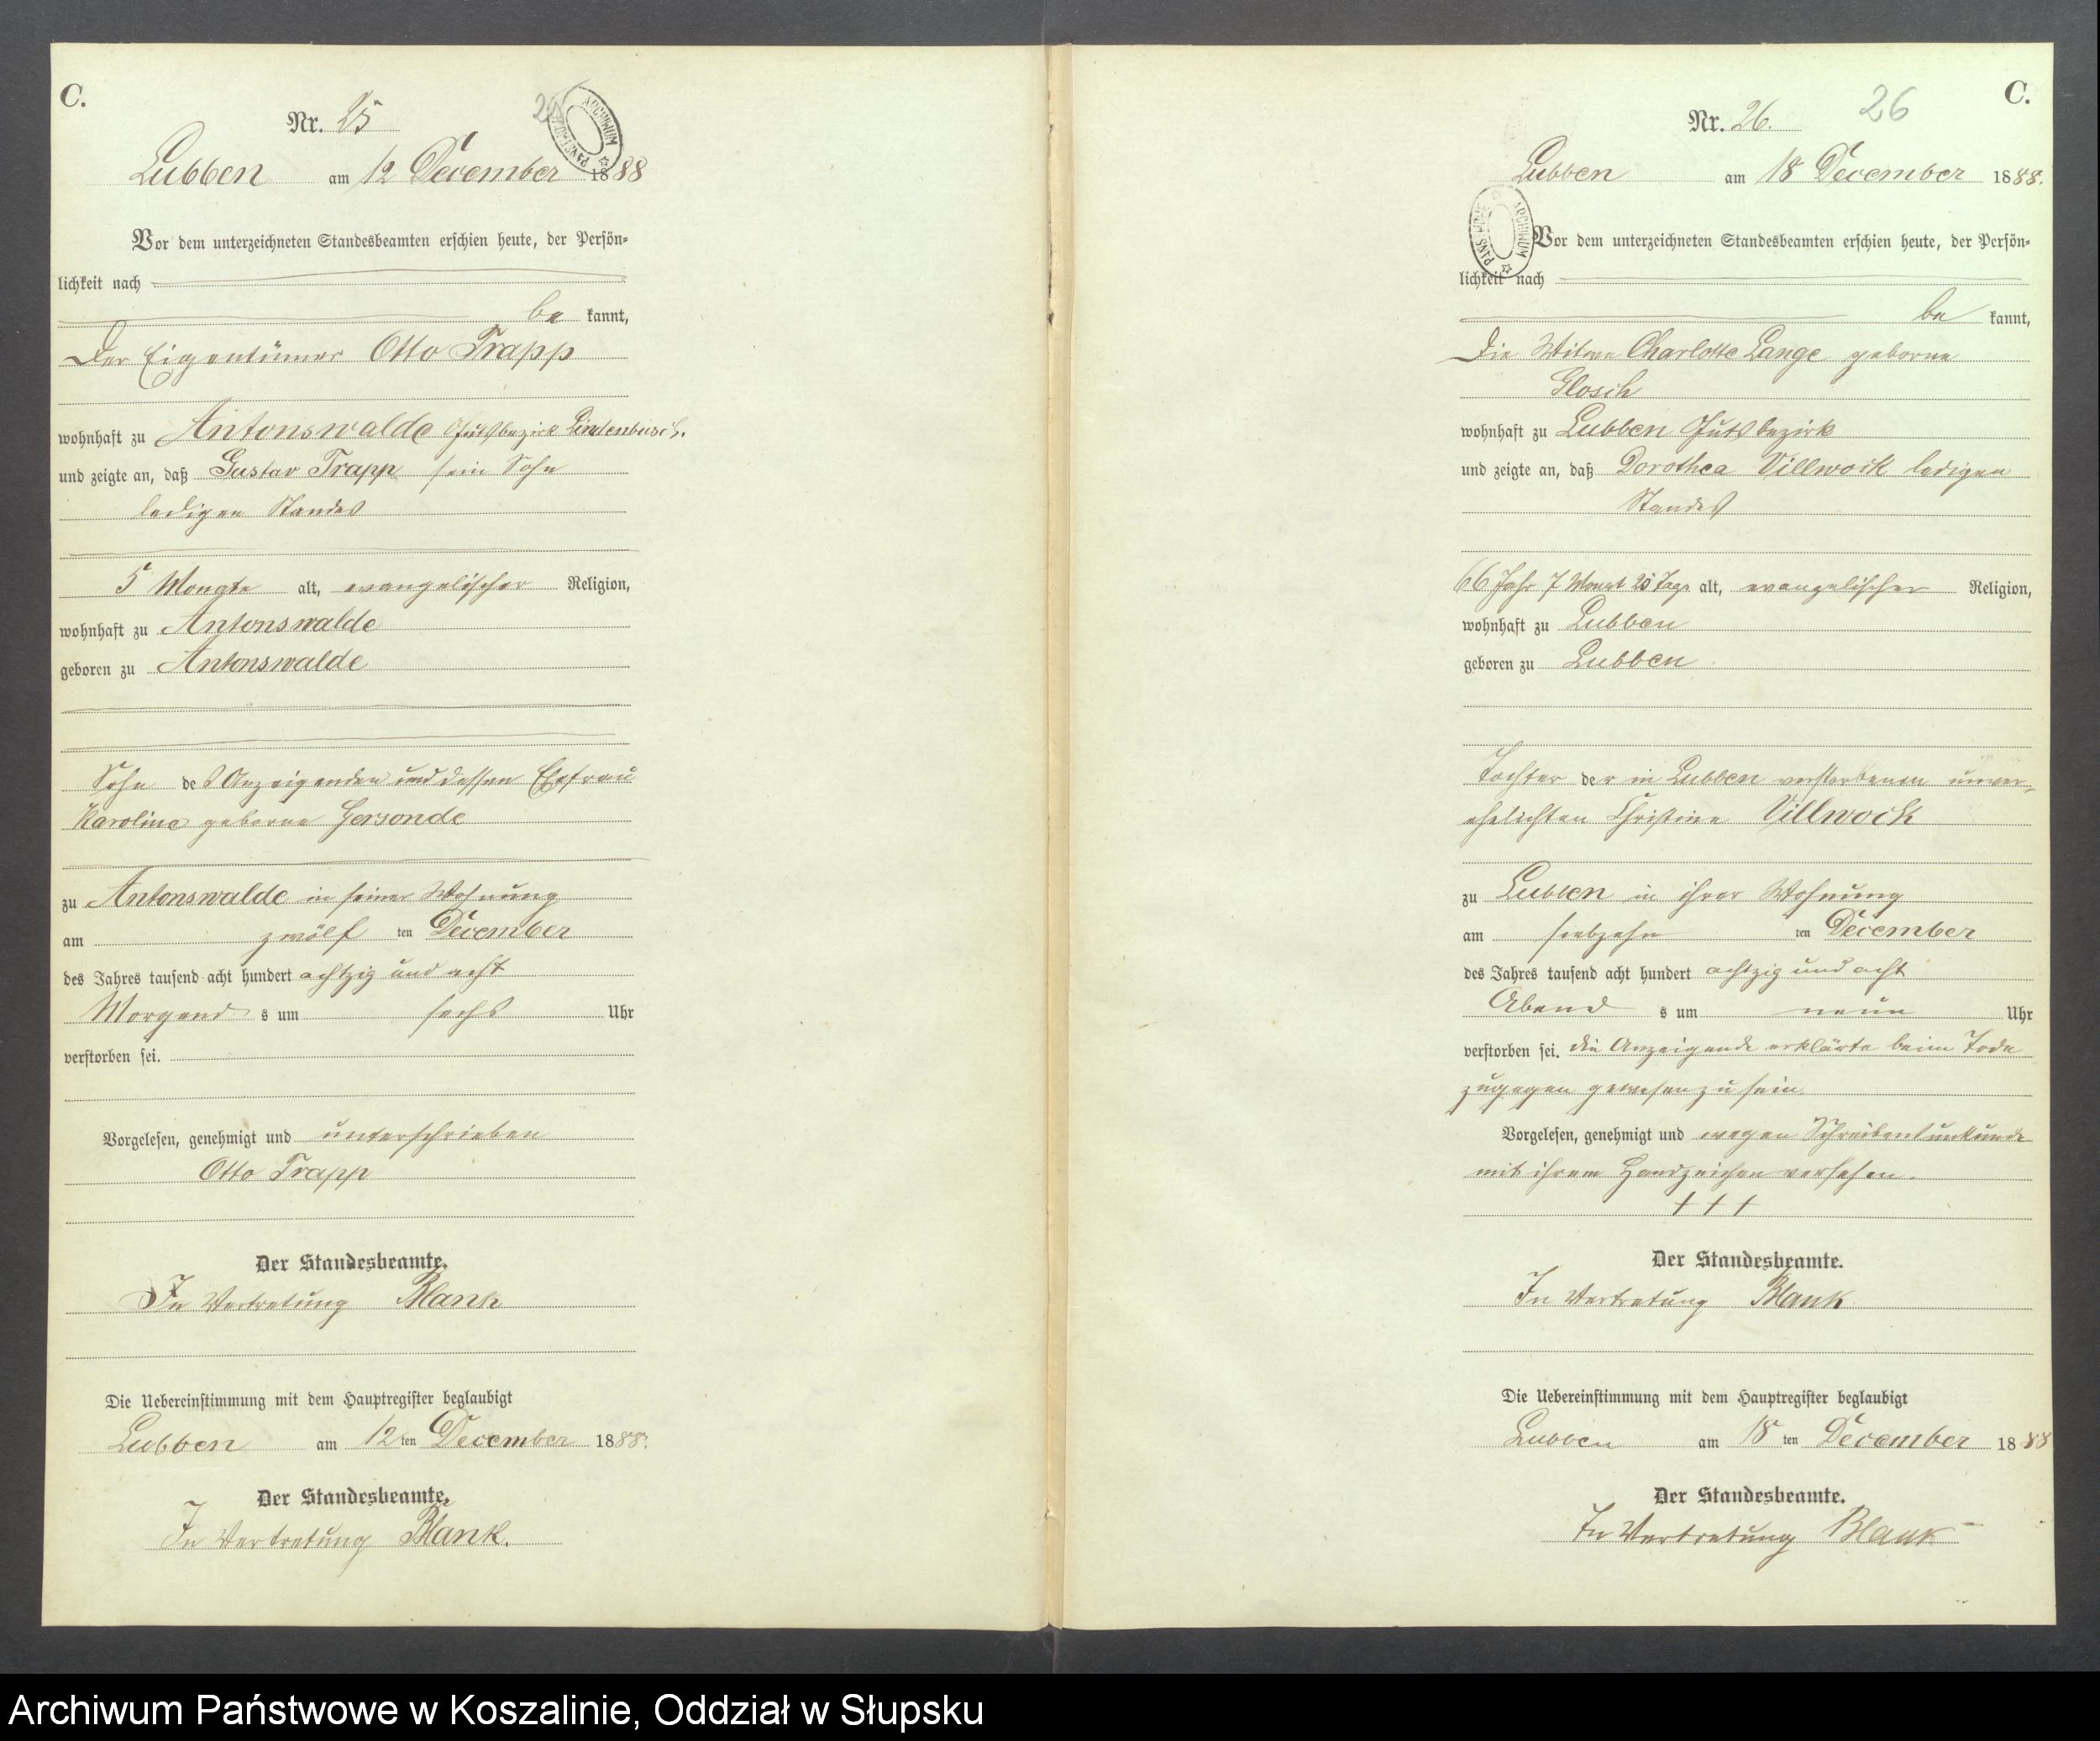 C.
Nr. 25
Lubben am 12 December 1888
Vor dem unterzeichneten Standesbeamten erschien heute, der Persön-
lichkeit nach
be kannt,
Der Eigentümer Otto Trapp
wohnhaft zu Antonswalde Gutsbezirk Lindenbusch.
und zeigte an, daß Gustav Trapp sein Sohn
ledigen Standes
5 Monate alt, evangelischer Religion,
wohnhaft zu Antonswalde
geboren zu Antonswalde
Sohn des Anzeigenden und dessen Ehefrau
Karoline geborne Gersonde
zu Antonswalde in seiner Wohnung
am zwölf ten December
des Jahres tausend acht hundert achtzig und acht
Morgend s um sechs Uhr
verstorben sei.
Vorgelesen, genehmigt und unterschrieben
Otto Trapp
Der Standesbeamte.
In Vertretung Blank
Die Uebereinstimmung mit dem Hauptregister beglaubigt
Lubben am 12 ten December 1888.
Der Standesbeamte.
In Vertretung Blank.
C.
26
Nr. 26.
Lubben am 18 December 1888.
Vor dem unterzeichneten Standesbeamten erschien heute, der Persön-
lichkeit nach
be kannt,
Die Witwe Charlotte Lange geborne
Glosch
wohnhaft zu Lubben Gutsbezirk
und zeigte an, daß Dorothea Villwock ledigen
Standes
66 Jahr 7 Monat 25 Tage alt, evangelischer Religion,
wohnhaft zu Lubben
geboren zu Lubben
Tochter der in Lubben verstorbenen unver-
ehelichten Christine Villwock
zu Lubben in ihrer Wohnung
am siebzehn ten December
des Jahres tausend acht hundert achtzig und acht
Abend s um neun Uhr
verstorben sei. die Anzeigende erklärte beim Tode
zugegen gewesen zu sein.
Vorgelesen, genehmigt und wegen Schreibensunkunde
mit ihrem Handzeichen versehen.
+++
Der Standesbeamte.
In Vertretung Blank
Die Uebereinstimmung mit dem Hauptregister beglaubigt
Lubben am 18 ten December 1888
Der Standesbeamte.
In Vertretung Blank
Archiwum Państwowe w Koszalinie, Oddział w Słupsku